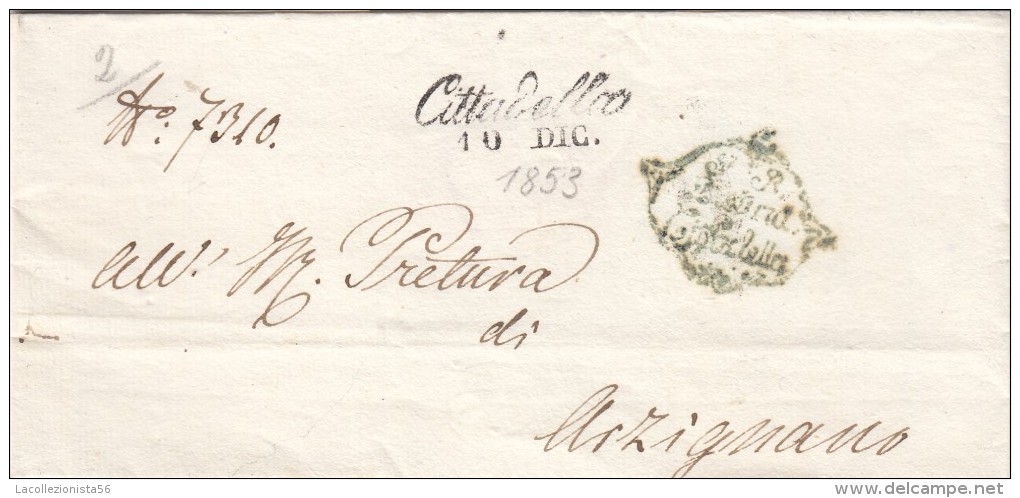 2/
No. 7310.
Cittadella
10 DIC.
1853
R.
Cittadella
All' I. R. Pretura
di
Arzignano
Lacollezionista56
delcampe.net